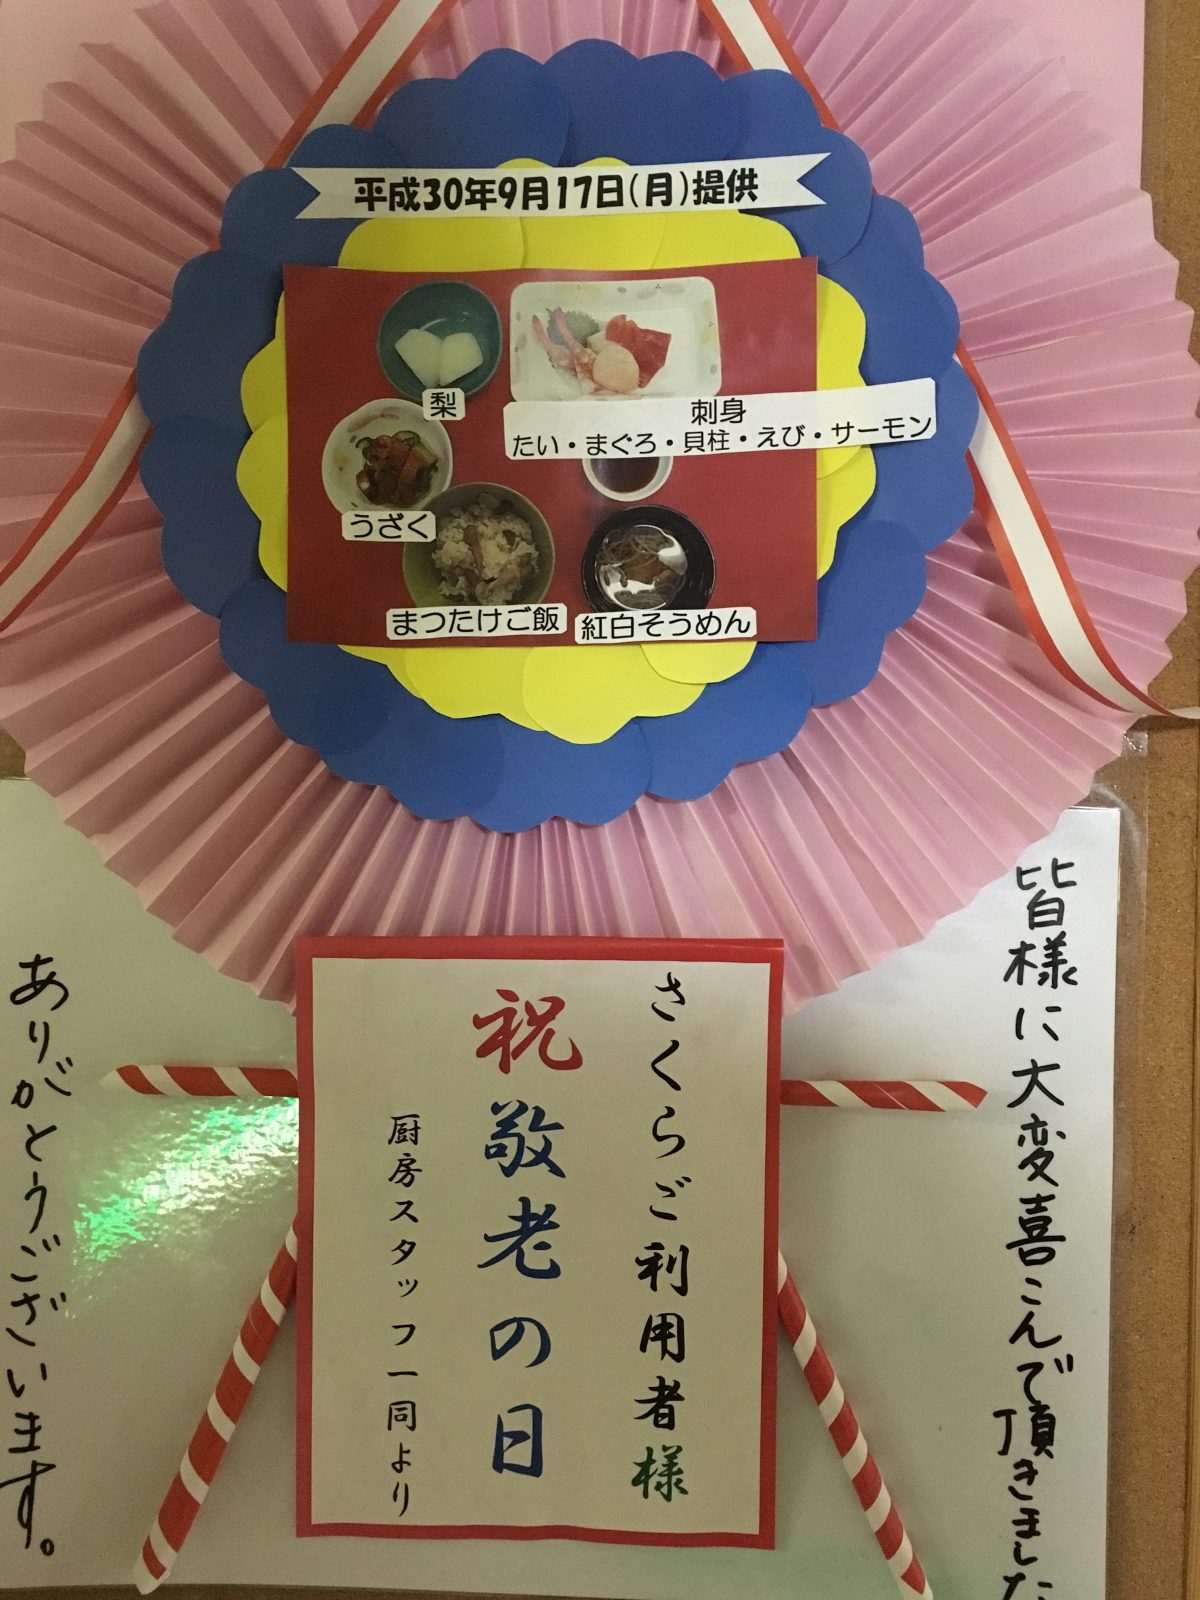 平成30年9月17日(月)提供
梨
刺身
たい・まぐろ・貝柱・えび・サーモン
うざく
まつたけご飯
紅白そうめん
皆様に大変喜こんで頂きました
さくらご利用者様
祝敬老の日
厨房スタッフ一同より
ありがとうございます。